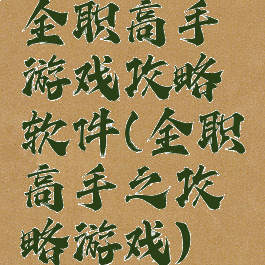 全职高手
游戏攻略
软件(全职
高手之攻
略游戏)